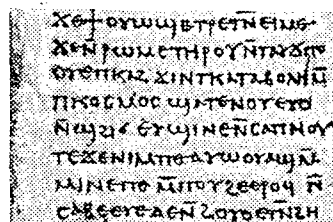 ϫⲉϯⲟⲩⲱϣⲉⲧⲣⲉⲧⲛ̄ⲉⲓⲙⲉ
ϫⲉⲛⲣⲱⲙⲉⲧⲏⲣⲟⲩⲛ̄ⲧⲁⲩϫⲡⲟ
ⲟⲩⲉⲡⲕⲁϩϫⲓⲛⲧⲕⲁⲧⲁⲃⲟⲗⲏⲙ̄
ⲡⲕⲟⲥⲙⲟⲥ ϣⲁⲧⲉⲛⲟⲩ ⲉⲩⲟ
ⲛ̄ϣϩⲓϭ ⲉⲩϣⲓⲛⲉⲛ̄ⲥⲁⲡⲛⲟⲩ
ⲧⲉϫⲉⲛⲓⲙⲡⲉⲁⲩⲱⲟⲩⲁϣⲙ̄
ⲙⲓⲛⲉⲡⲉ ⲙ̄ⲡⲟⲩϩⲉⲉⲣⲟϥ ⲛ̄
ⲥⲁⲃⲉⲉⲩⲉⲇⲉⲛ̄ϩⲟⲩⲟⲉⲧⲛ̄ϩⲏ